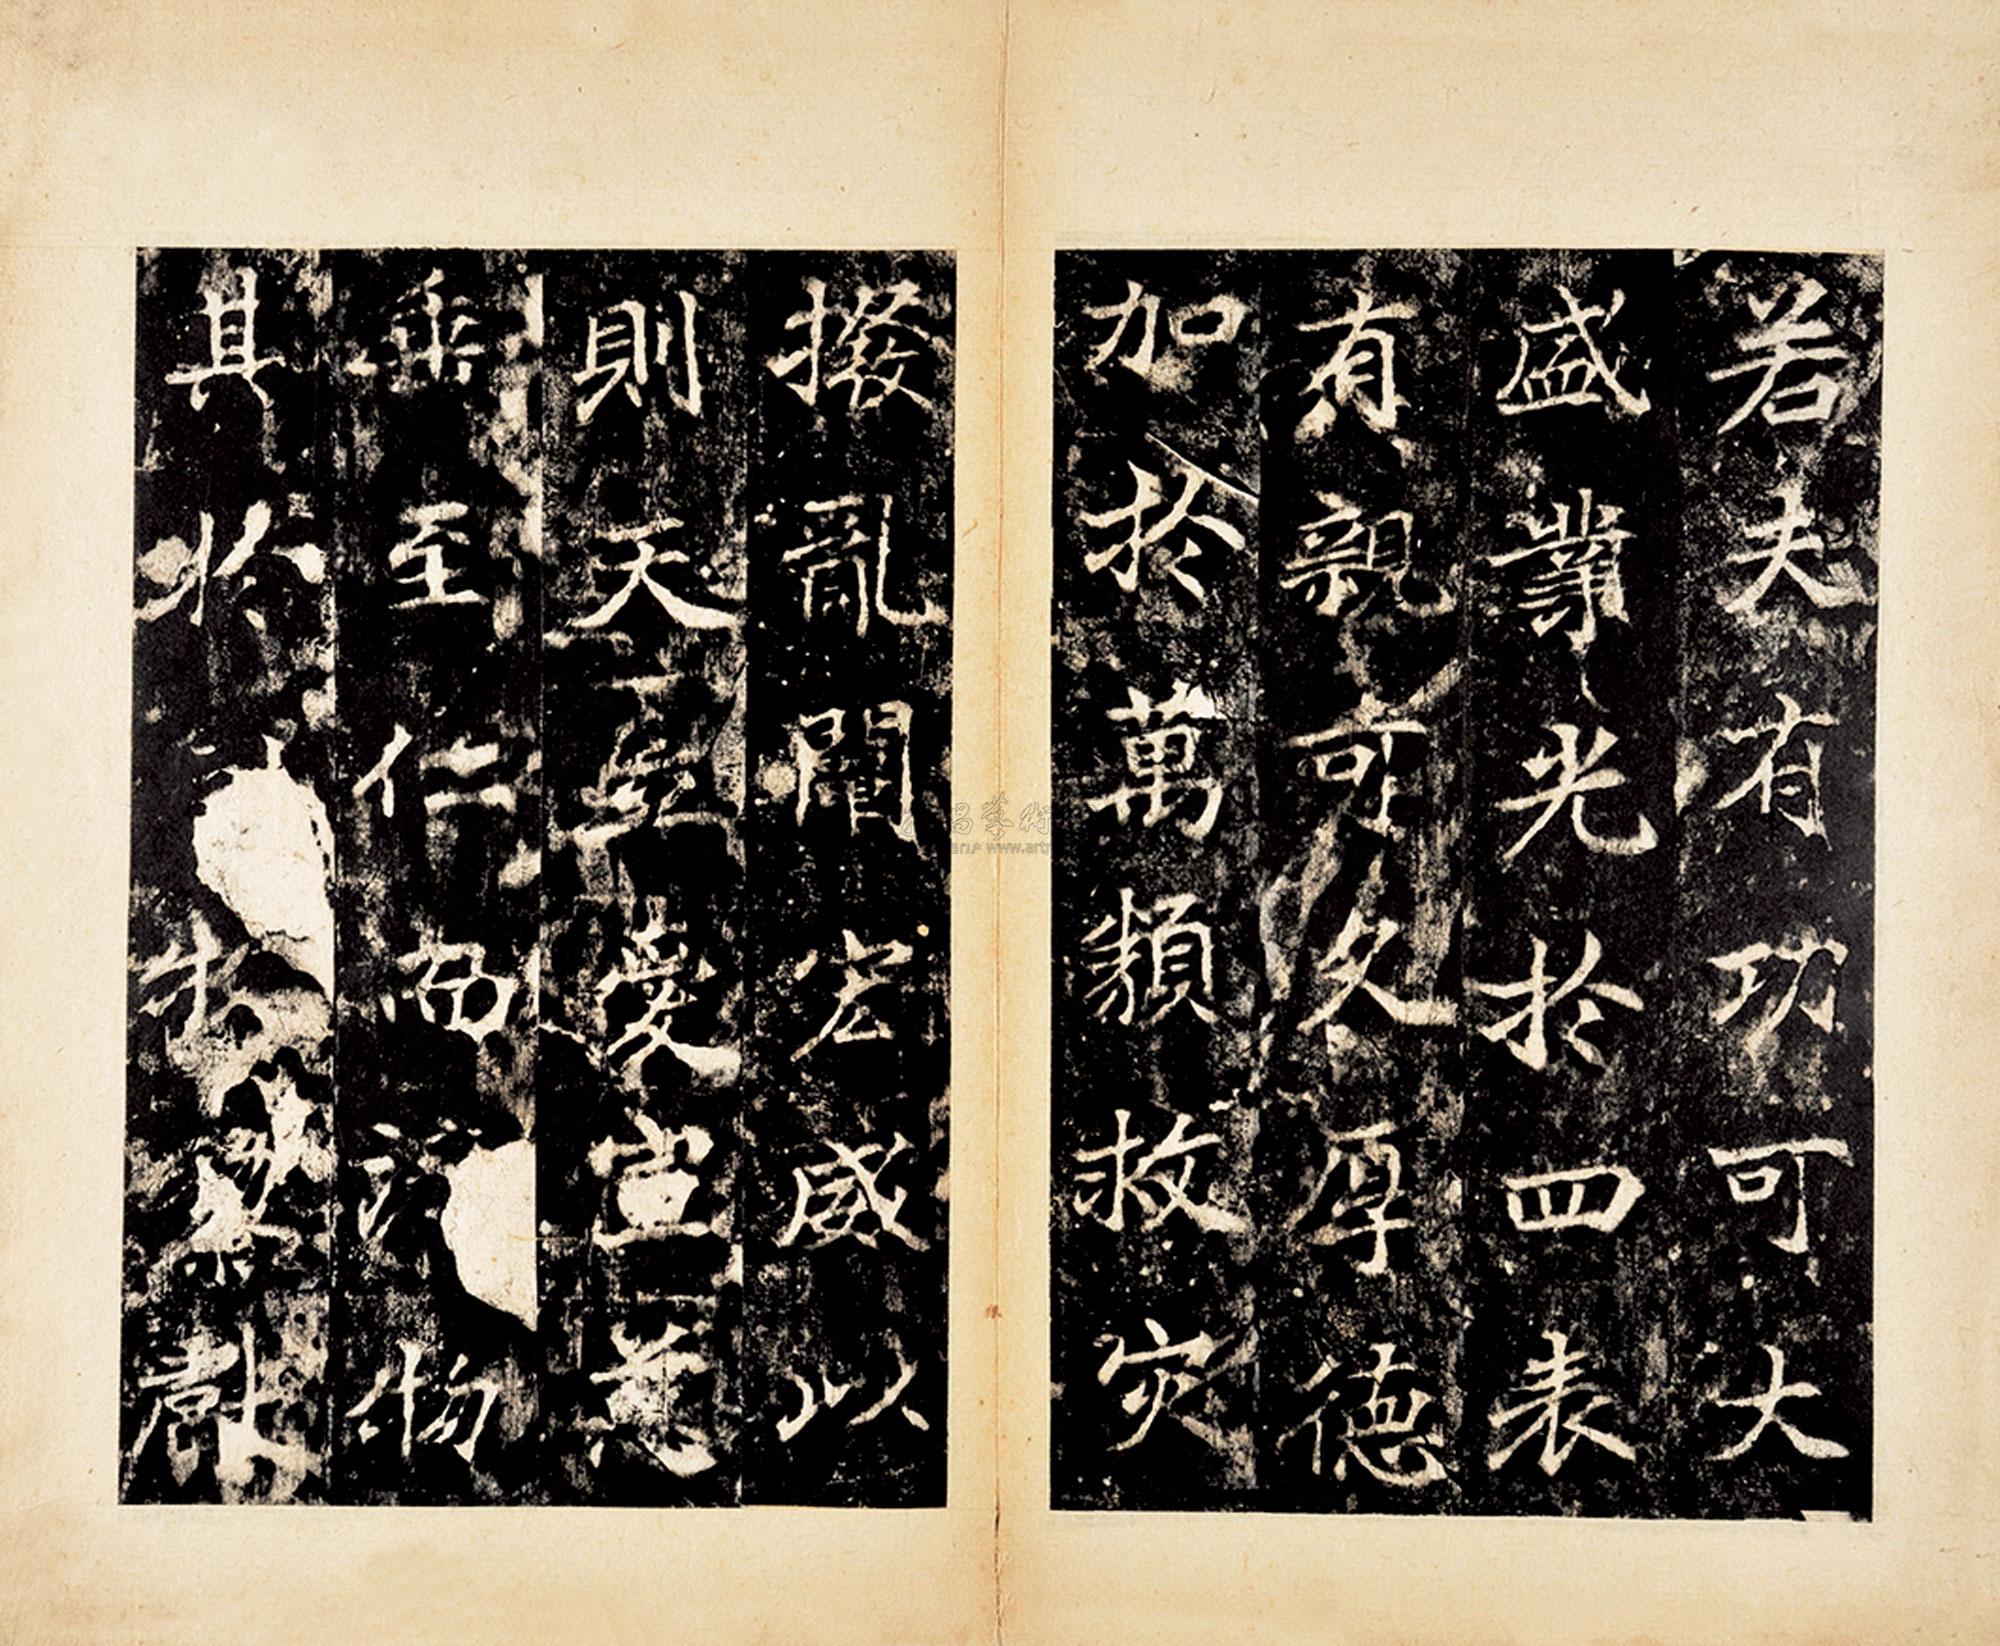 若夫有功可大
盛業光於四表
有親可久厚德
加於萬類救灾
撥亂闡宏威以
則天垂愛宣慈
乘至仁而 物
其於
獻